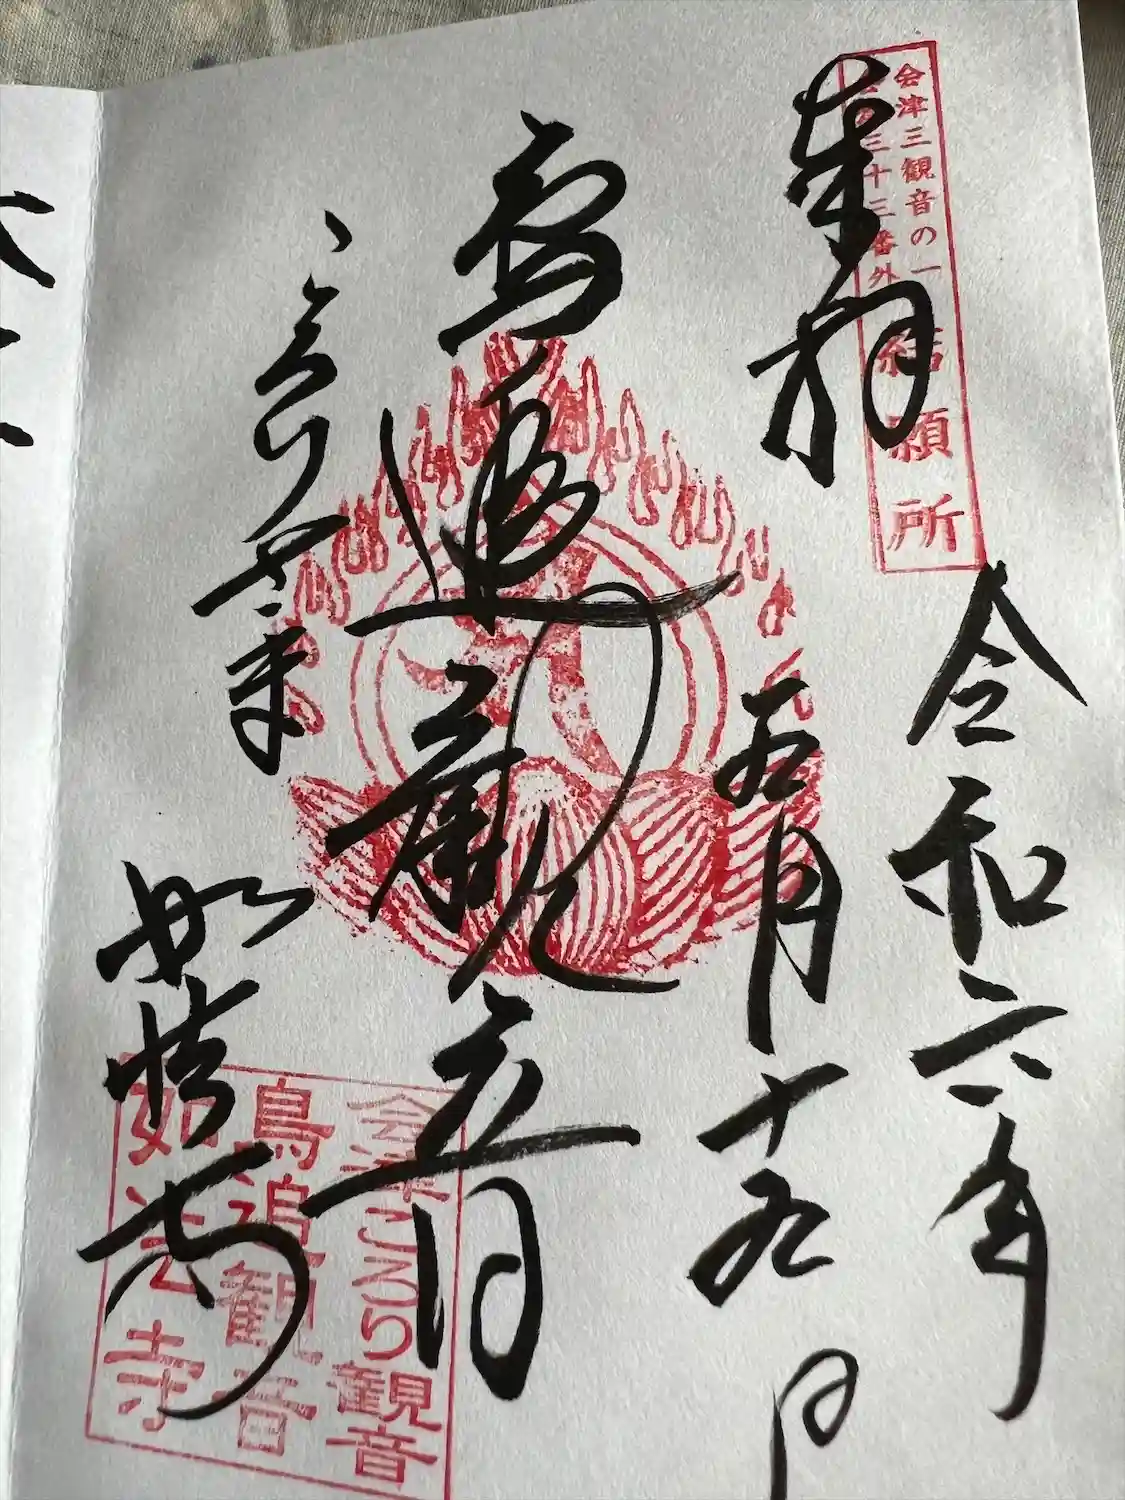 会津三観音の一
会津三十三番外
結願所
奉拝
令和六年
五月十九日
鳥追観音
ころり
如法寺
会津ころり観音
鳥追観音
如法寺